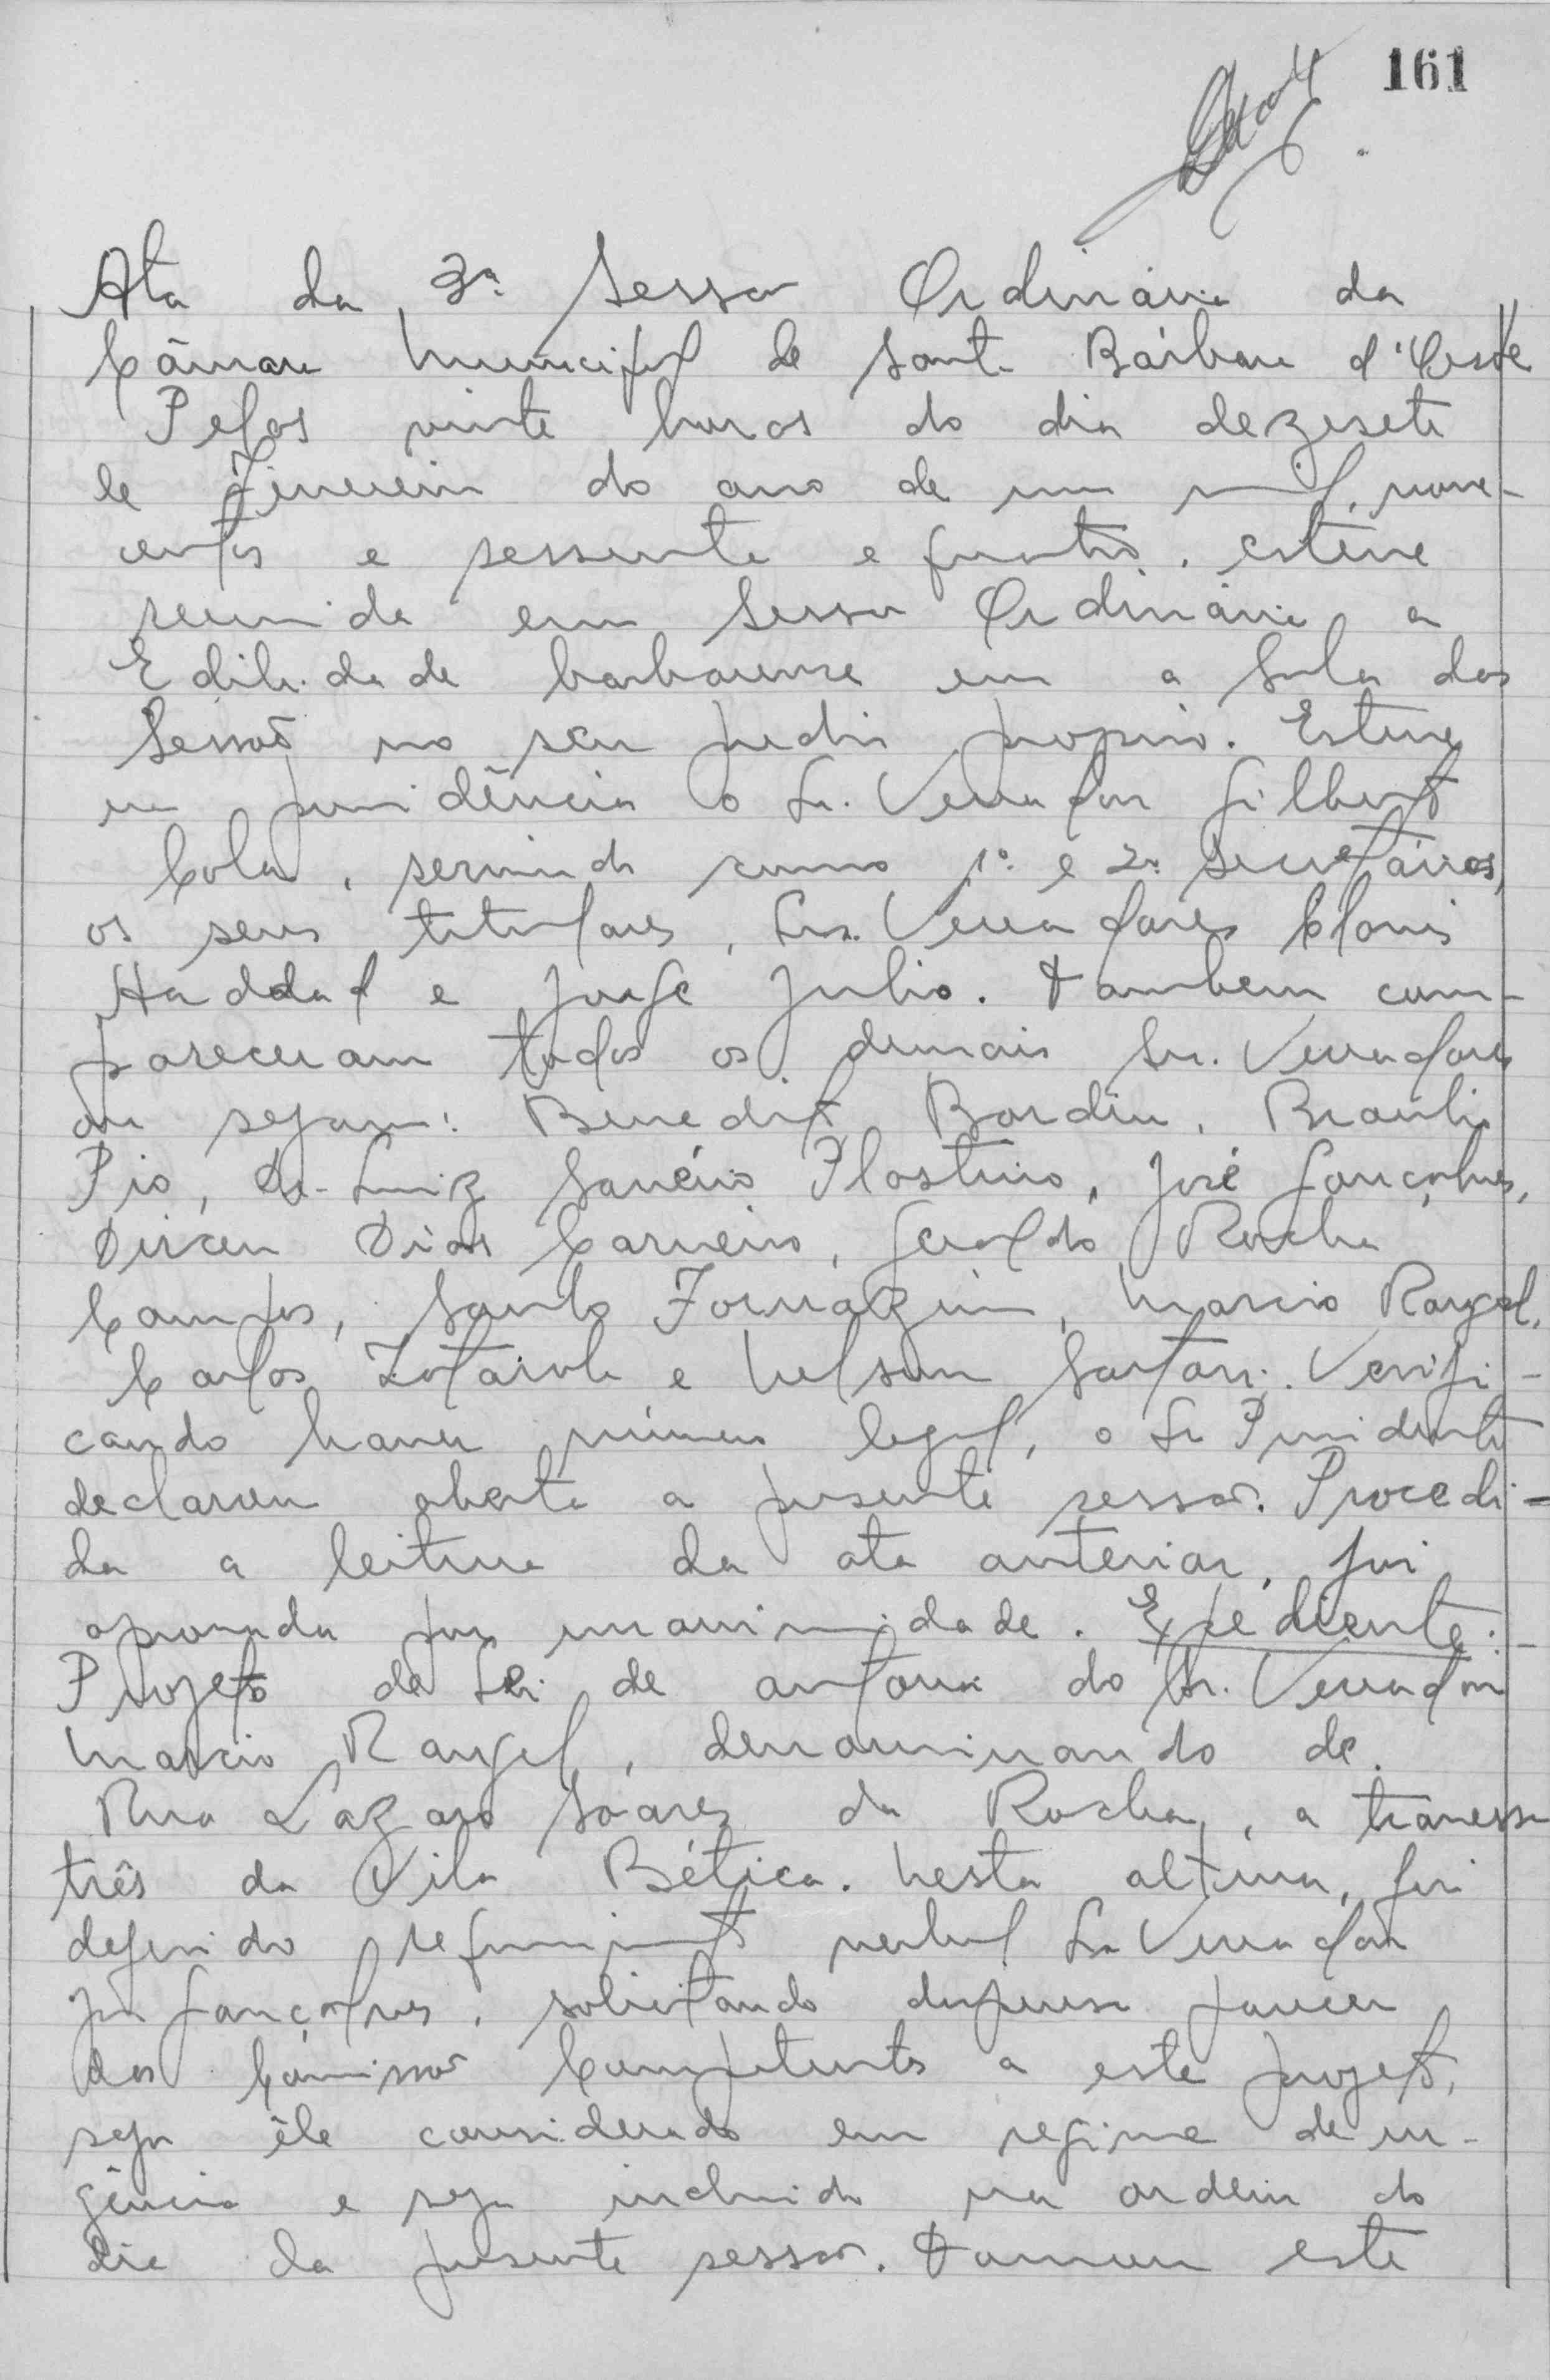 161
Ata da 3ª Sessão Ordinária da
Câmara Municipal de Santa Bárbara d'Oeste
Pelas vinte horas do dia dezesete
de Fevereiro do ano de um mil, nove-
centos e sessenta e quatro, esteve
reunida em Sessão Ordinária a
Edilidade barbarense em a Sala das
Sessões no seu predio proprio. Esteve
na presidência o Sr. Vereador Gilberto
Cola, servindo como 1º e 2º secretários,
os seus titulares, Srs. Vereadores Clovis
Haddad e Jorge Julio. Tambem com-
pareceram todos os demais Srs. Vereadores
ou sejam: Benedito Bordin, Braulio
Pio, Dr. Luiz Saverio Plastino, José Gonçalves,
Dirceu Dias Carneiro, Geraldo Rocha
Campos, Santo Fornazin, Marcio Rangel,
Carlos e Nelson Sartori. Verifi-
cando haver número legal, o Sr Presidente
declarou aberta a presente sessão. Procedi-
da a leitura da ata anterior, foi
aprovada por unanimidade. Expediente:-
Projeto de Lei de autoria do Sr. Vereador
Marcio Rangel, denominando de
Rua Lazaro Soares da Rocha, a travessa
três da Vila Bética. Nesta altura, foi
deferido requerimento verbal Sr. Vereador
José Gonçalves, solicitando dispensa parecer
das Comissões Competentes a este projeto,
seja êle considerado em regime de ur-
gência e seja incluido na ordem do
dia da presente sessão. Tomou este